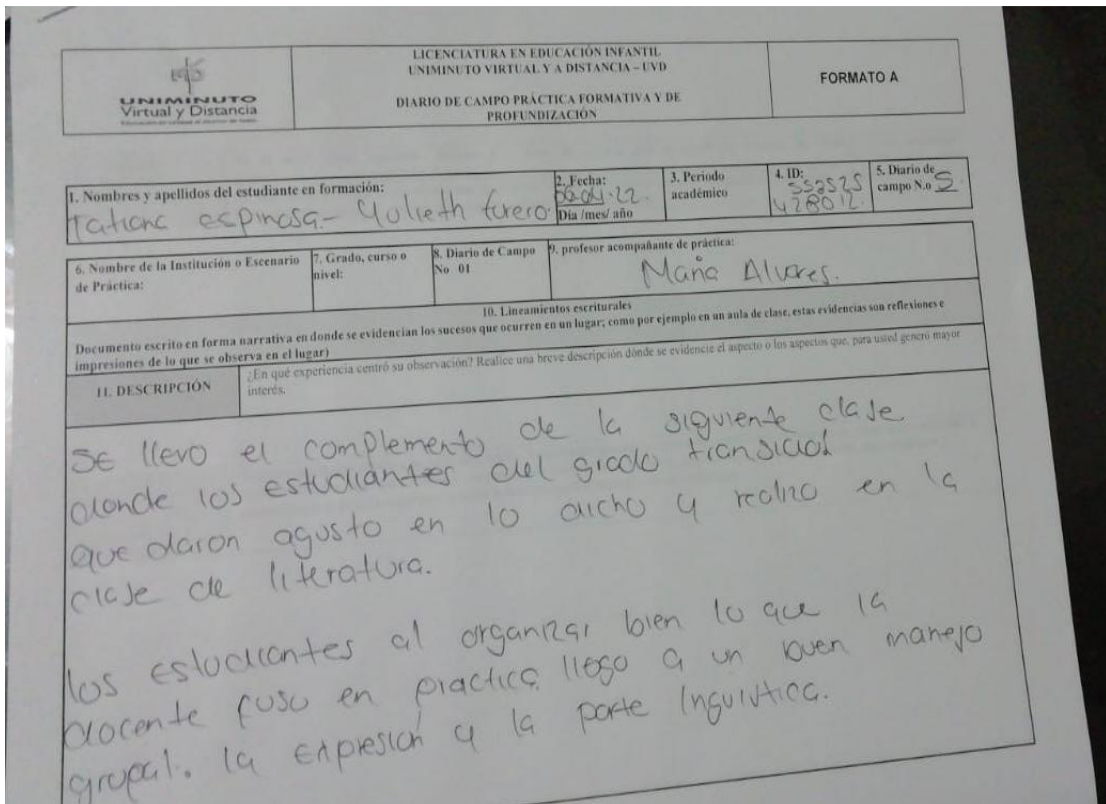 UNIMINUTO
Virtual y Distancia
LICENCIATURA EN EDUCACIÓN INFANTIL
UNIMINUTO VIRTUAL Y A DISTANCIA – UVD
DIARIO DE CAMPO PRÁCTICA FORMATIVA Y DE
PROFUNDIZACIÓN
FORMATO A
1. Nombres y apellidos del estudiante en formación:
Tatiana espinosa - Yulieth furero.
2. Fecha:
06-04-22.
Dia /mes/ año
3. Periodo
académico
4. ID:
552525
428012.
5. Diario de
campo N.o 5
6. Nombre de la Institución o Escenario
de Práctica:
7. Grado, curso o
nivel:
8. Diario de Campo
No 01
9. profesor acompañante de práctica:
Maria Alvares.
10. Lineamientos escriturales
Documento escrito en forma narrativa en donde se evidencian los sucesos que ocurren en un lugar; como por ejemplo en un aula de clase, estas evidencias son reflexiones e
impresiones de lo que se observa en el lugar)
11. DESCRIPCIÓN
¿En qué experiencia centró su observación? Realice una breve descripción donde se evidencie el aspecto o los aspectos que, para usted generó mayor
interés.
SE llevo el complemento de la siguiente clase
donde los estudiantes del grado transiciol
que daron agusto en lo dicho y realizo en la
clase de literatura.
los estudiantes al organizar bien lo que la
docente puso en practica llego a un buen manejo
grupal. la expresión y la parte linguistica.